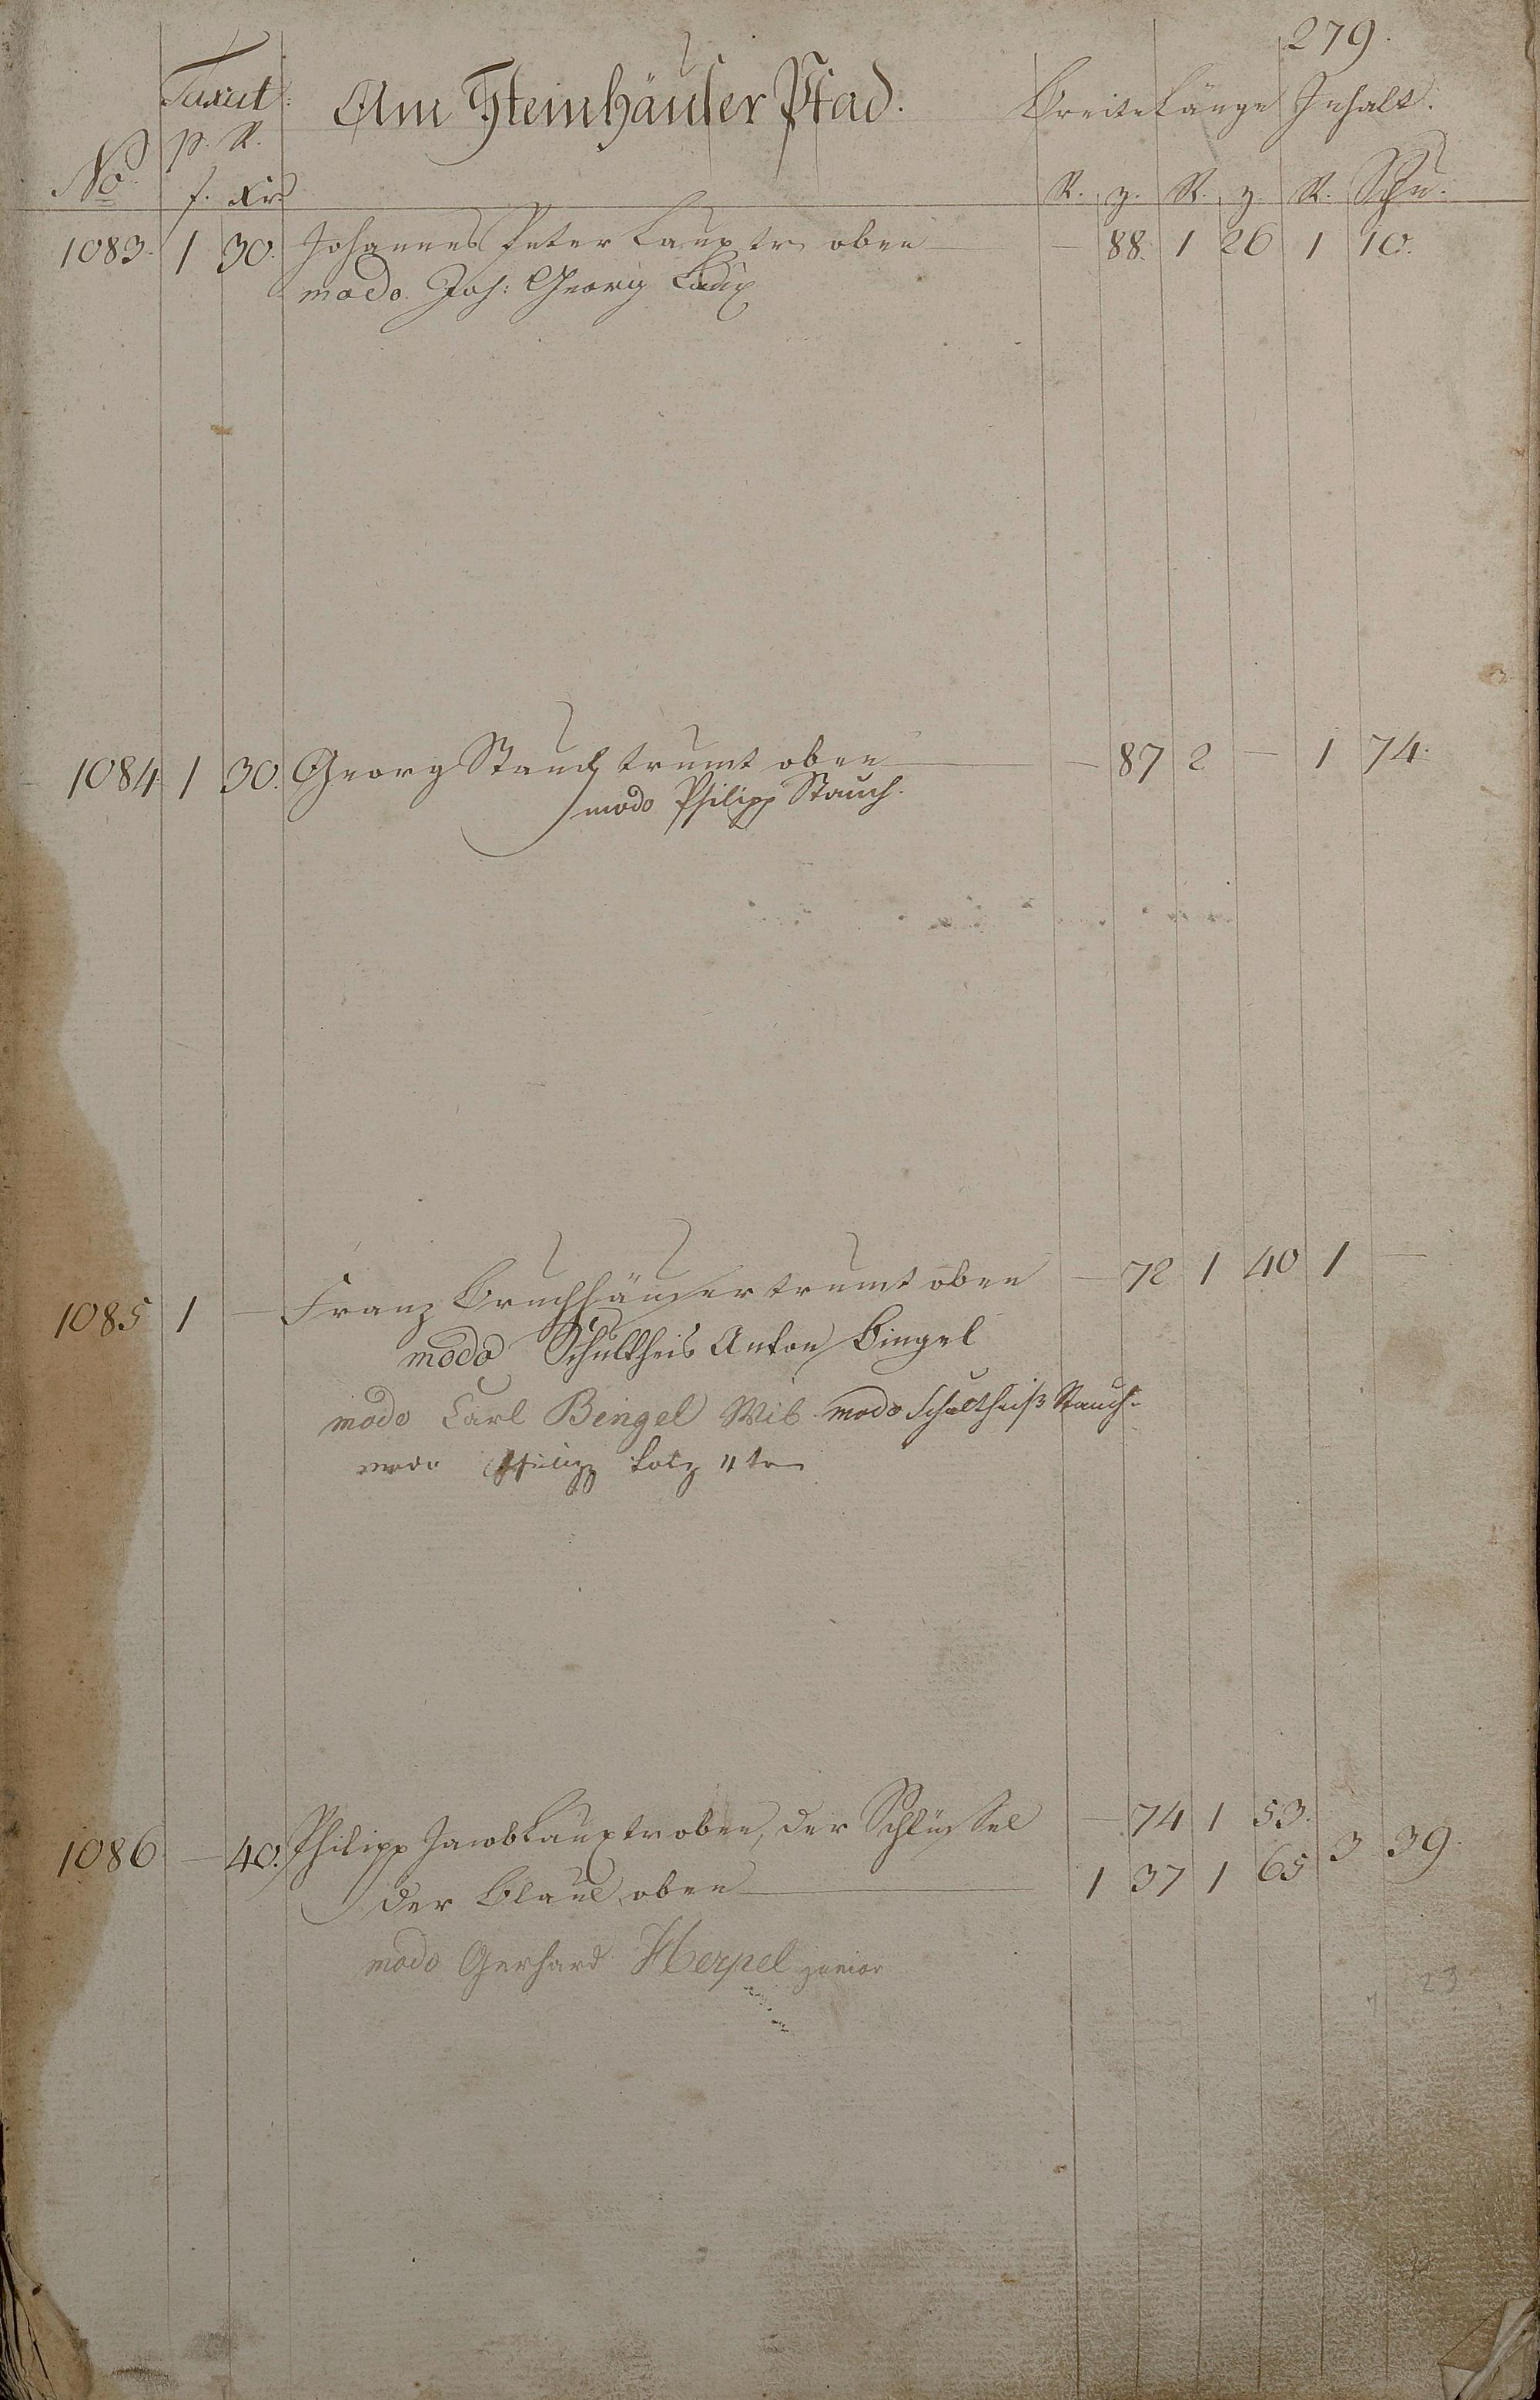 279.
Taxat: Am Steinhäuser Pfad. Breite Länge Inhalt.
p. R.
No f. Xr R. z. R. z. R. Schu.
1083. 1 30. Johannes Peter Laux tr. oben — 88. 1 26 1 10.
modo Joh: Georg Laux
1084 1 30. Georg Stauch trumt oben — 87 2 — 1 74.
modo Philipp Stauch.
1085 1 — Franz Bruchhäuser trumt oben — 72 1 40 1 —
modo Schultheis Anton Bingel
modo Carl Bengel Wib modo Schultheiß Stauch.
modo Philipp Lotz
1086 — 40. Philipp Jacob Laux tr oben, der Schlüssel — 74 1 53. 3 39.
der Blaue oben 1 37 1 65
modo Gerhard Herpel junior
23